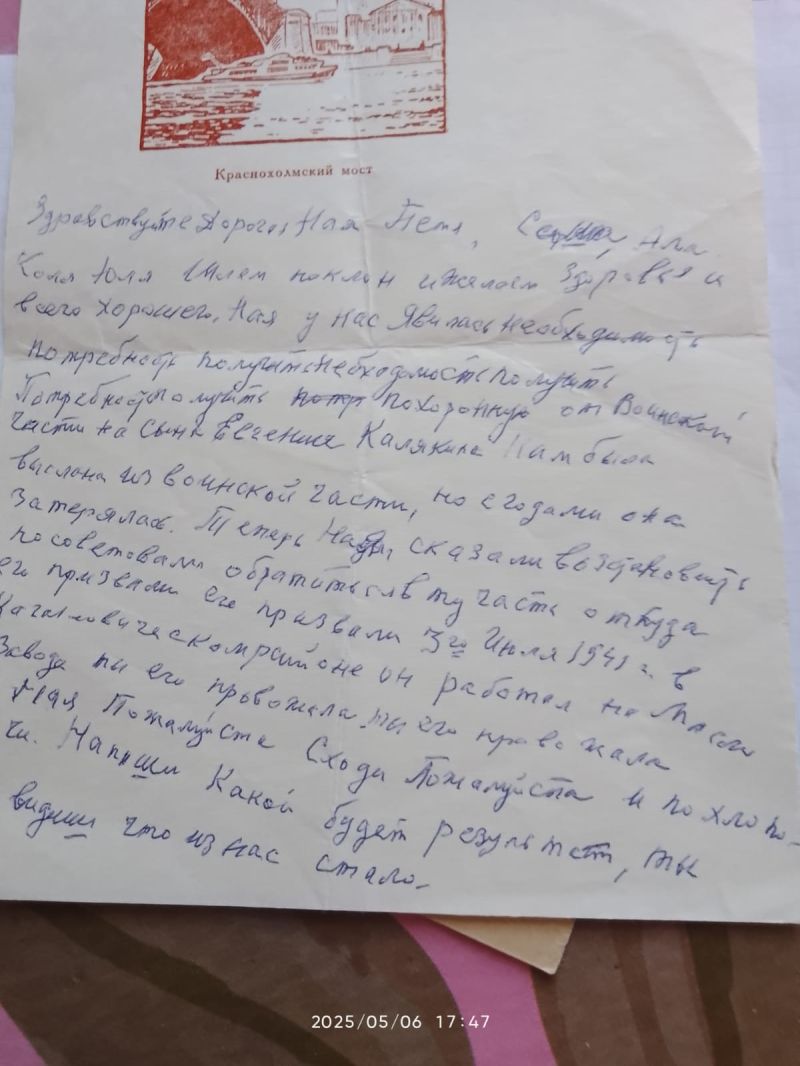 Краснохолмский мост
Здравствуйте Дорогая Ная Петя, Ала
Коля Юля Шлем поклон и желаем Здоровья и
всего хорошего. Ная у нас Явилась необходимость
потребность получить необходимость получить
Потребность получить похоронную от Воинской
части на сына Евгения Калякина Нам была
выслана из воинской части, но с годами она
затерялась. Теперь сказали восстановить
посоветовали обратиться в ту часть откуда
его призвали его призвали 3го Июля 1941 г. в
Кагановическом районе он работал на Масло
Заводе ты его провожала ты его провожала
Ная Пожалуйста Сходи Пожалуйста и похлопо-
чи. Напиши Какой будет результат, ты
видиш что из нас стало.
2025/05/06 17:47